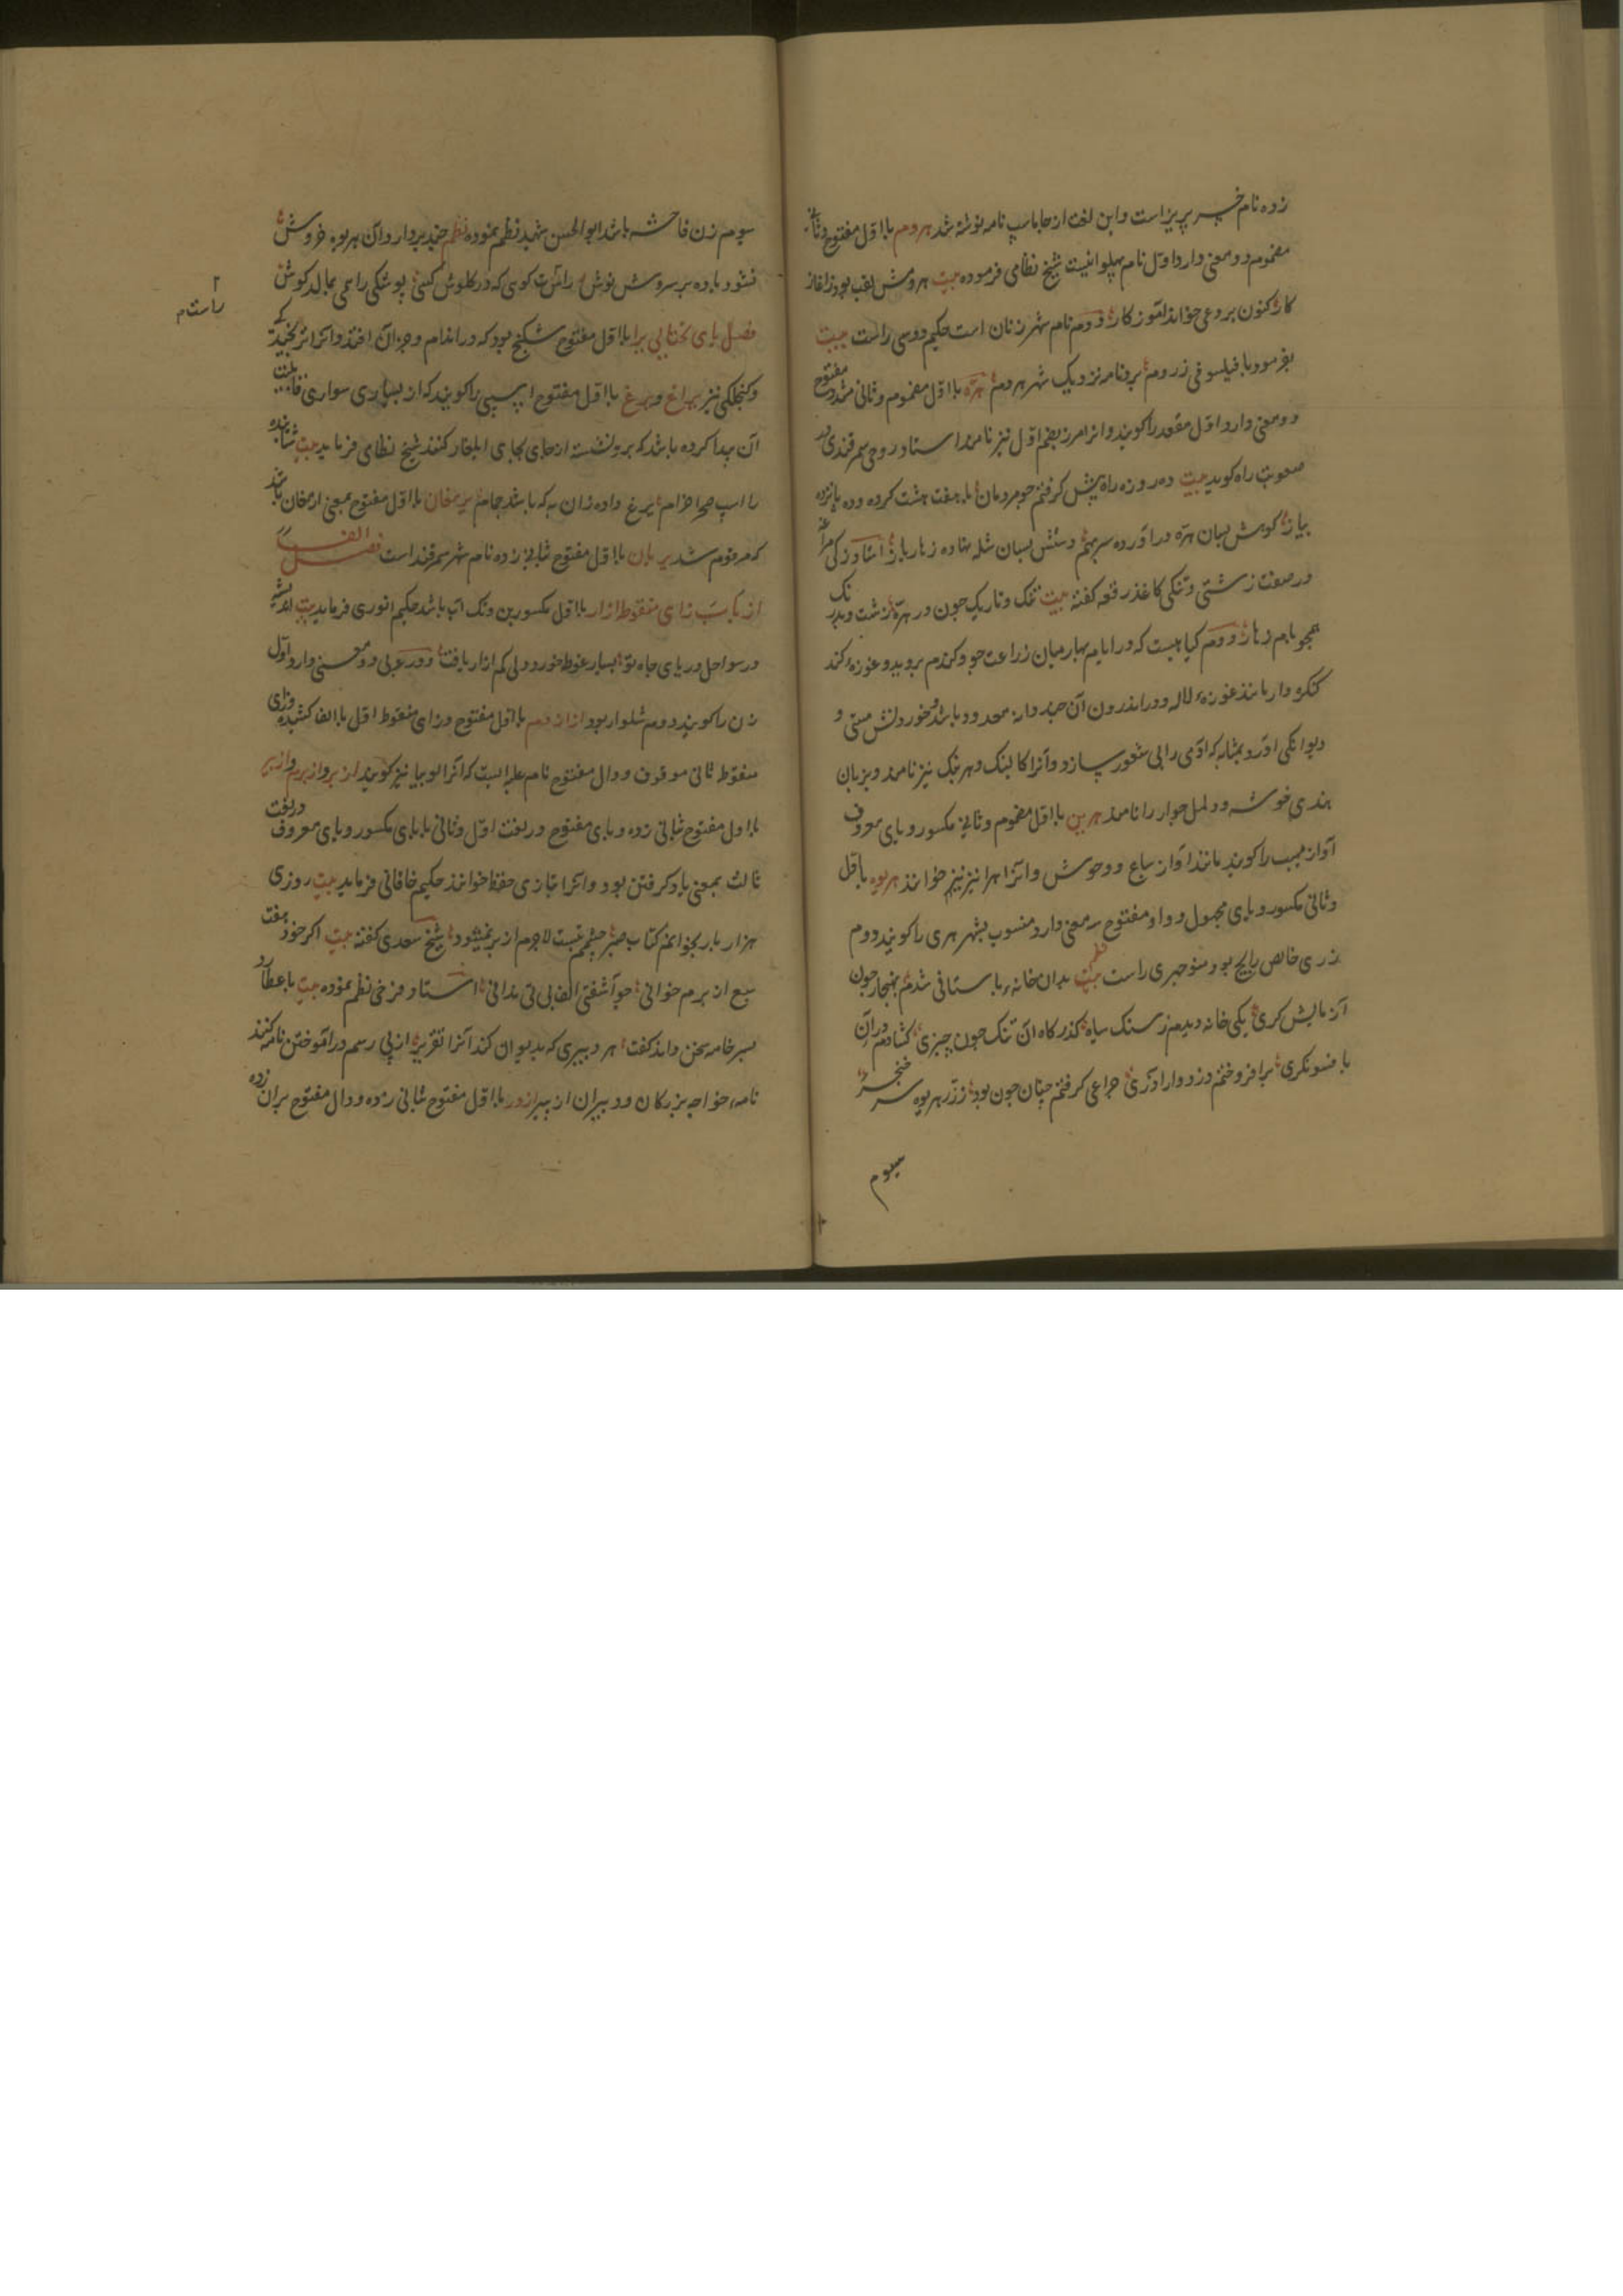 زده نام خسرو پرویز است و این لغت از جاماسپ نامه نوشته شد هروم با اول مفتوح و ثانی
مضموم دو معنی دارد اول نام پهلوانیست شیخ نظامی فرموده بیت هرومش لقب بود ز اغاز
کار کنون بردعی خواند آموزکار و دوم نام شهر زنان است حکیم فردوسی راست بیت
بفرمود با فیلسوفی ز روم بر نامزد یک شهر هروم هره با اول مضموم و ثانی مشدد مفتوح
دو معنی دارد اول مقعد را کویند و انرا مرز بضم اول نیز نامند استاد روحی سمرقندی در
صعوبت راه کوید بیت ده روزه راه پیش کرفتم جو مردمان با هفت هشت کرده و ده پانزده
پیاز کوش بسان هره در آورده سر بهم دستش بسان شله نهاده زهار باز استاد
در صفت زشتی و تنکی کاغذ رقعه کفته بیت تنک و تاریک چون در هره زشت و بدرنک
همچو بام زهار و دوم کیاهیست که در ایام بهار میان زراعت جو و کندم بروید و غوزه کند
کنکره دار مانند غوزه لاله و در اندرون آن چند دانه معدود باشد و خوردنش مستی و
دیوانکی آورد بمثابه که آدمی را بی شعور سازد و آنرا کابنک و هربنک نیز نامند و بزبان
هندی خوشه و دلمل جوار را نامند هرین با اول مضموم و ثانی مکسور و یای معروف
آواز مهیب را کویند مانند آواز سباع و وحوش و آنرا هرا نیز نیز خوانند هریوه با اول
و ثانی مکسور و یای مجهول و واو مفتوح سه معنی دارد منسوب بشهر هری را کویند دوم
زری خالص رایج بود منوچهری راست نظم بیت بدان خانه باستانی شدم بهنجار چون
آزمایش کری یکی خانه دیدم ز سنک سیاه کذرکاه آن تنک چون چنبری کشادم در آن
بافسونکری برافروختم زدوار اوآذری چراغی کرفتم چنان چون بود ز زر هریوه سر خنجری
سیوم
سیوم زن فاحشه باشد ابوالحسن شهید نظم نموده نظم چند بردارد آن هریوه خروش
نشود باده بر سروش نوش راست کوی که در کلوش کسی پوشکی را همی بمالد کوش
راست م
فصل یای تحتانی یرا با اول مفتوح شکنج بود که در اندام و جز آن افتد و آنرا انجیدکی
و کنجلکی نیز یراغ و یرغ با اول مفتوح اسپی را کویند که از بسیاری سواری قابلیت
آن پیدا کرده باشد که بر و نشسته از جای بجای ایلغار کنند شیخ نظامی فرماید بیت شتابنده
را اسب صحرا خرام یرغ داده زان به که باشد بجام یرمغان با اول مفتوح بمعنی ارمغان باشد
که مرقوم شد یرمان با اول مفتوح ثانی زده نام شهر سمرقند است فصل الف
از باب زای منقوط ازار با اول مکسور بن و تک آب باشد حکیم انوری فرماید بیت اندیشه
در سواحل دریای جاه تو بسیار غوطه خورد ولی کم ازار یافت و در عربی دو معنی دارد اول
زن را کویند دوم شلوار بود ازاردم با اول مفتوح و زای منقوط اول با الف کشیده و زای
منقوط ثانی موقوف و دال مفتوح نام غله ایست که آنرا لوبیا نیز کویند از بر و از برم و از بر
با اول مفتوح ثانی زده و بای مفتوح در لغت اول و ثانی با بای مکسور و یای معروف در لغت
ثالث بمعنی یاد کرفتن بود و آنرا بتازی حفظ خوانند حکیم خاقانی فرماید بیت روزی
هزار بار بخوانم کتاب صبر چشمم نیست لاجرم از بر نمیشود شیخ سعدی کفته بیت اکر خود هفت
سبع از برم خوانی چو آشفتی الف بی تی ندانی استاد فرخی نظم نموده بیت با عطارد
بسر خامه سخن داند کفت هر دبیری که بدیوان کند آنرا تقریر از پی رسم در آموختن نامه کنند
نامه خواجه بزرکان و دبیران از بیر ازدر با اول مفتوح ثانی زده و دال مفتوح بران زده